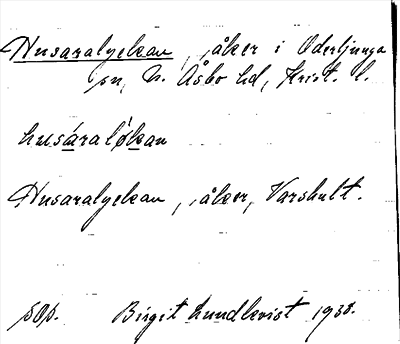 Husaralyckan, åker i Oderljunga
sn, N. Åsbo hd, Krist. l.
husáralǿkan
Husaralyckan, åker, Varshult.
pop. Birgit Lundkvist 1938.